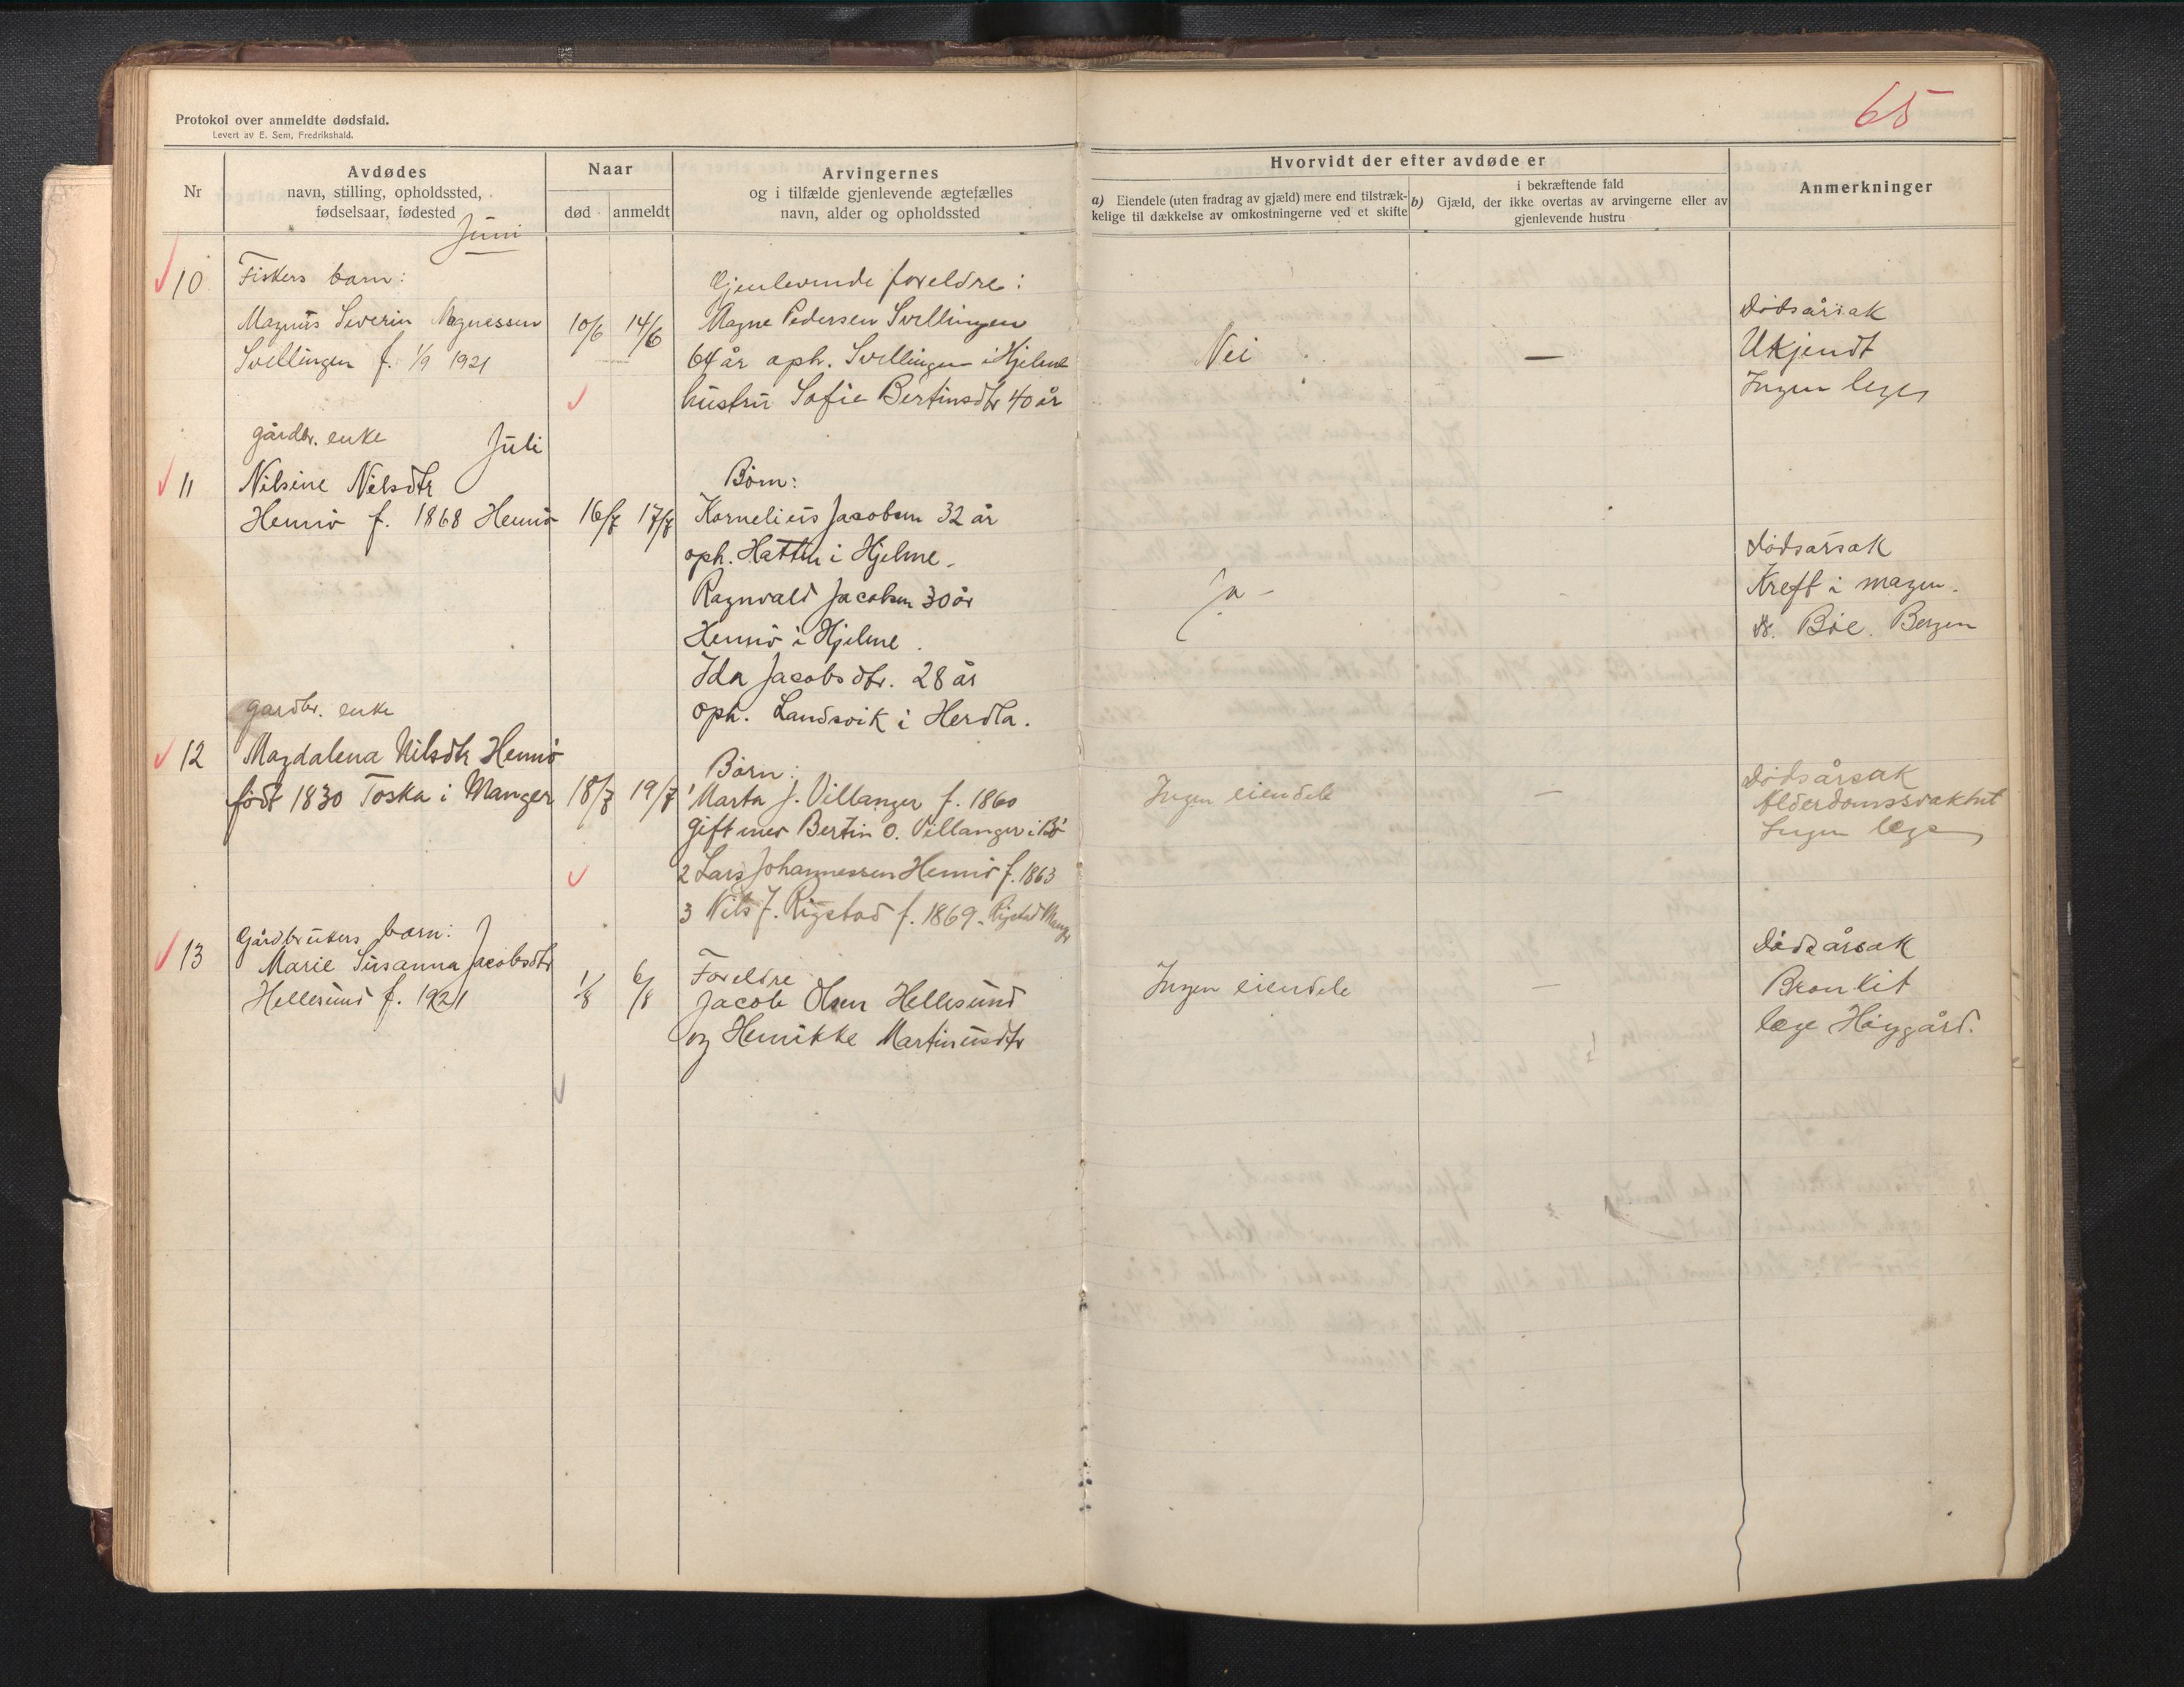 65
Protokol over anmeldte dødsfald.
Levert av E. Sem, Fredrikshald.
Nr
Avdødes
navn, stilling, opholdssted,
fødselsaar, fødested
Naar
død
anmeldt
Arvingernes
og i tilfælde gjenlevende ægtefælles
navn, alder og opholdssted
Hvorvidt der efter avdøde er
a) Eiendele (uten fradrag av gjæld) mere end tilstræk-
kelige til dækkelse av omkostningerne ved et skifte
i bekræftende fald
b) Gjæld, der ikke overtas av arvingerne eller av
gjenlevende hustru
Anmerkninger
Juni
10
Fiskers barn:
Magnus Severin Magnessen
Svellingen f. 1/9 1921
10/6
14/6
Gjenlevende foreldre:
Magne Pedersen Svellingen
64 år oph. Svellingen i Hjelme
hustru Sofie Bertinsdtr 40 år
Nei
—
Dødsårsak
Ukjendt
Ingen lege
Juli
11
gårdbr. enke
Nilsine Nilsdtr
Hennø f. 1868 Hennø
16/7
17/7
Børn:
Kornelius Jacobsen 32 år
oph. Hatten i Hjelme.
Ragnvald Jacobsen 30 år
Hennø i Hjelme.
Ida Jacobsdtr. 28 år
oph. Landsvik i Herdla.
Ja -
Dødsårsak
Kreft i magen.
Dr. Bøe. Bergen
12
gårdbr. enke
Magdalena Nilsdtr Hennø
født 1830 Toska i Manger
18/7
19/7
Børn:
1 Marta J. Villanger f. 1860
gift med Bertin O. Villanger i Bø
2 Lars Johannessen Hennø f. 1863
3 Nils J. Rigstad f. 1869 - Rigstad Manger
Ingen eiendele
—
Dødsårsak
Alderdomssvakhet
Ingen lege
13
Gårdbrukers barn:
Marie Susanna Jacobsdtr
Hellesund f. 1921
1/8
6/8
Foreldre
Jacob Olsen Hellesund
og Henrikke Martinusdtr
Ingen eiendele
—
Dødsårsak
Bronkit
læge Høygård.